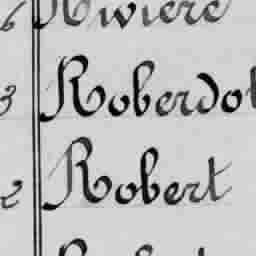 6 Rivière
3 Roberdot
2 Robert